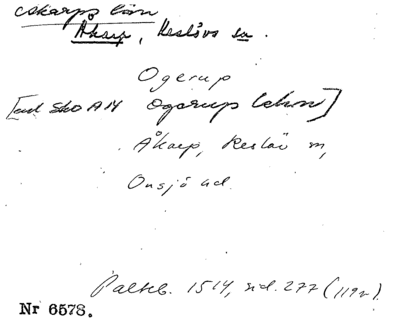 Åkarps län
Åkarp, Reslövs sn.
Ogerup
[enl SkO A M Ogerup lehn]
Åkarp, Reslöv sn,
Onsjö hd.
Paltsb. 1514, sid. 277 (119r).
Nr 6578.